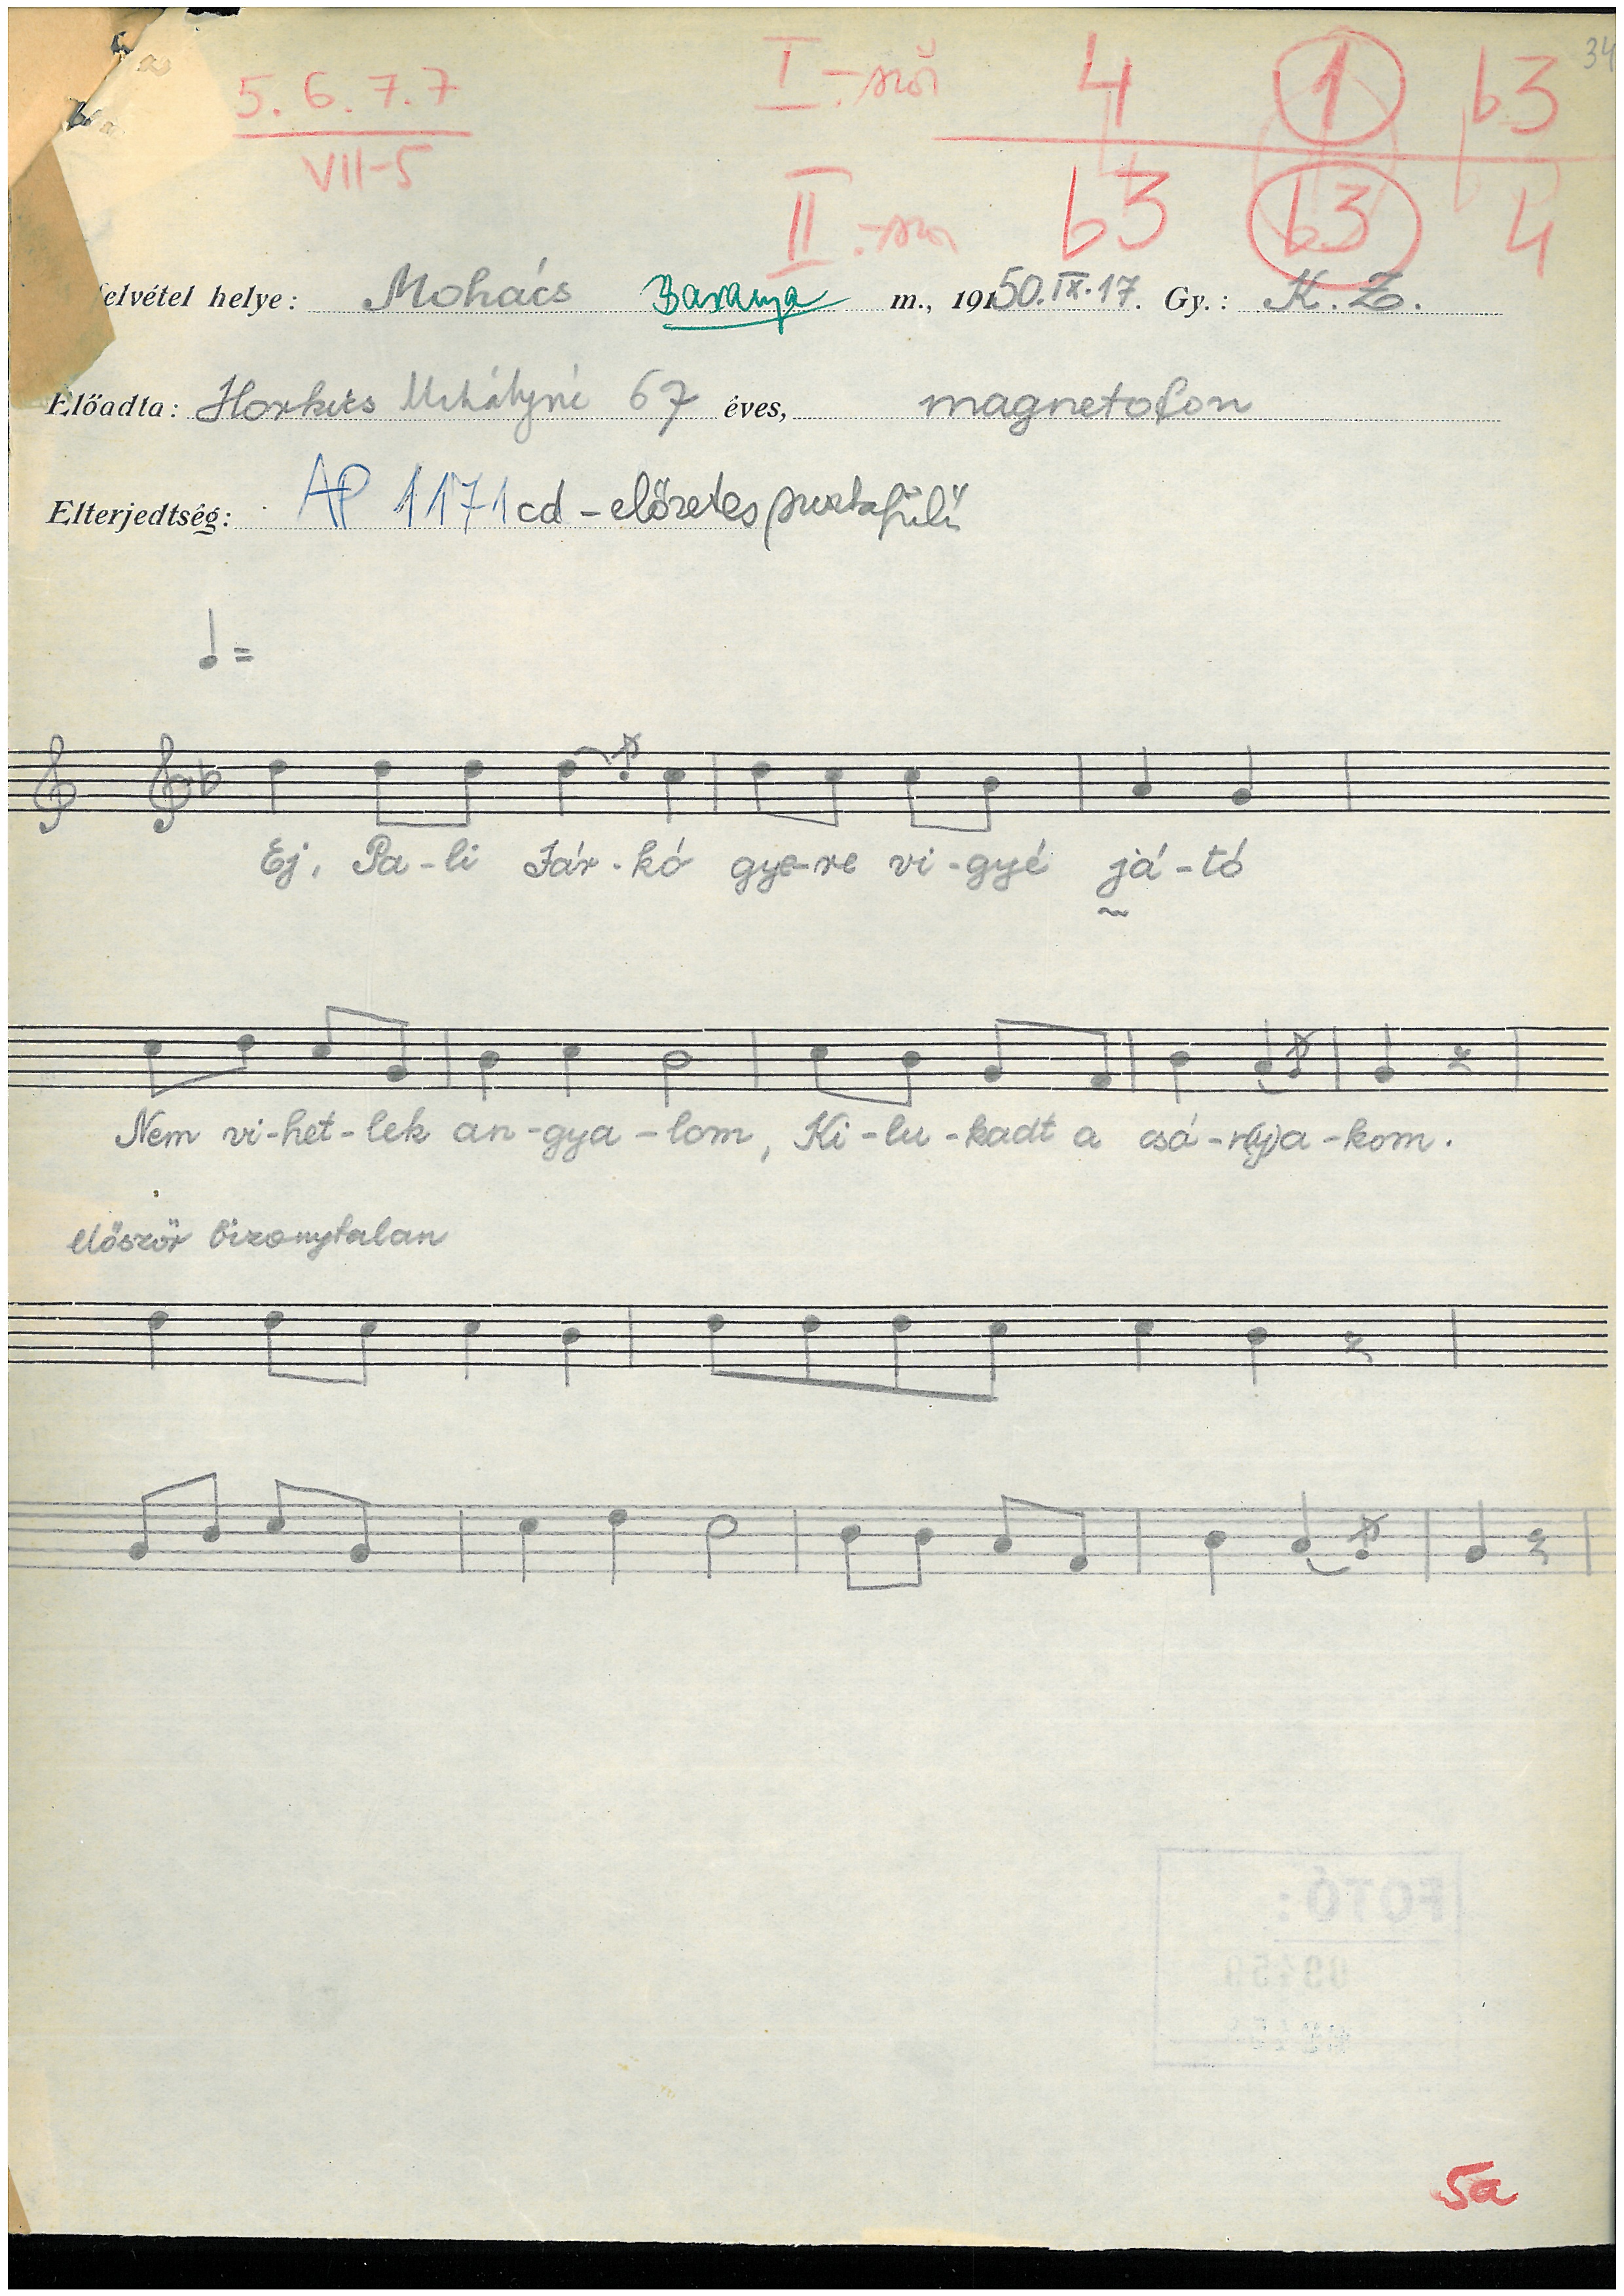 34
5. 6. 7. 7 I.-ször 4 1 b3
VII-5
II.-szor b3 b3 4
felvétel helye: Mohács Baranya m., 19150.IX.17. Gy.: K. Z.
Előadta: Mihályné 67 éves, magnetofon
Elterjedtség: AP 1171cd - előzetes
=
Ej, Pa-li Jár-kó gye-re vi-gyé já-tó
Nem vi-het-lek an-gya-lom, Ki-lu-kadt a csó-n(y)a-kom.
először bizonytalan
FOTÓ:
5a